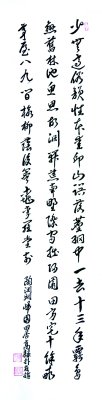 少無適俗韻性本愛丘山誤落塵網中一去三十年羈鳥
戀舊林池魚思故淵開荒南野際守拙歸園田方宅十餘畝
草屋八九間榆柳蔭後簷桃李羅堂前
陶淵明歸園田居